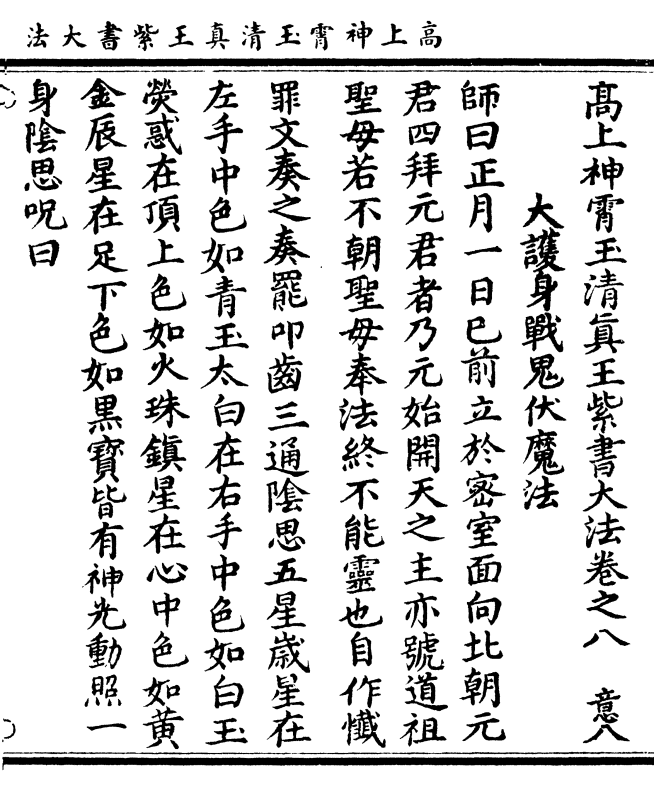 高上神霄玉清真王紫書大法
髙上神霄玉清眞王紫書大法卷之八 意八
大護身戰鬼伏魔法
師曰正月一日巳前立於密室面向北朝元
君四拜元君者乃元始開天之主亦號道祖
聖母若不朝聖母奉法終不能靈也自作懺
罪文奏之奏罷叩齒三通陰思五星歲星在
左手中色如青玉太白在右手中色如白玉
熒惑在頂上色如火珠鎮星在心中色如黄
金辰星在足下色如黑寶皆有神光動照一
身陰思呪曰